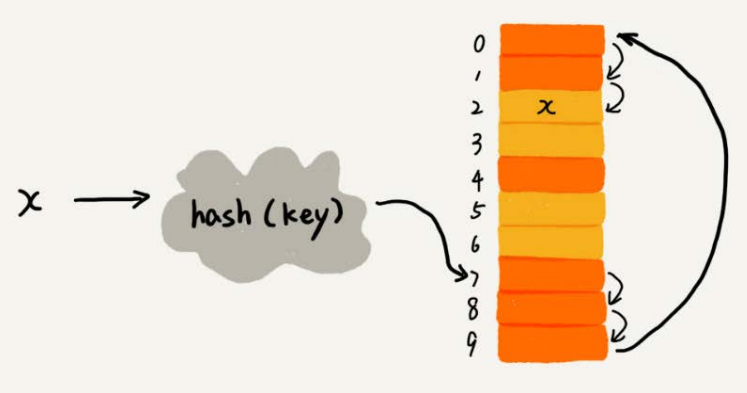 x
hash (key)
0
1
2
x
3
4
5
6
7
8
9